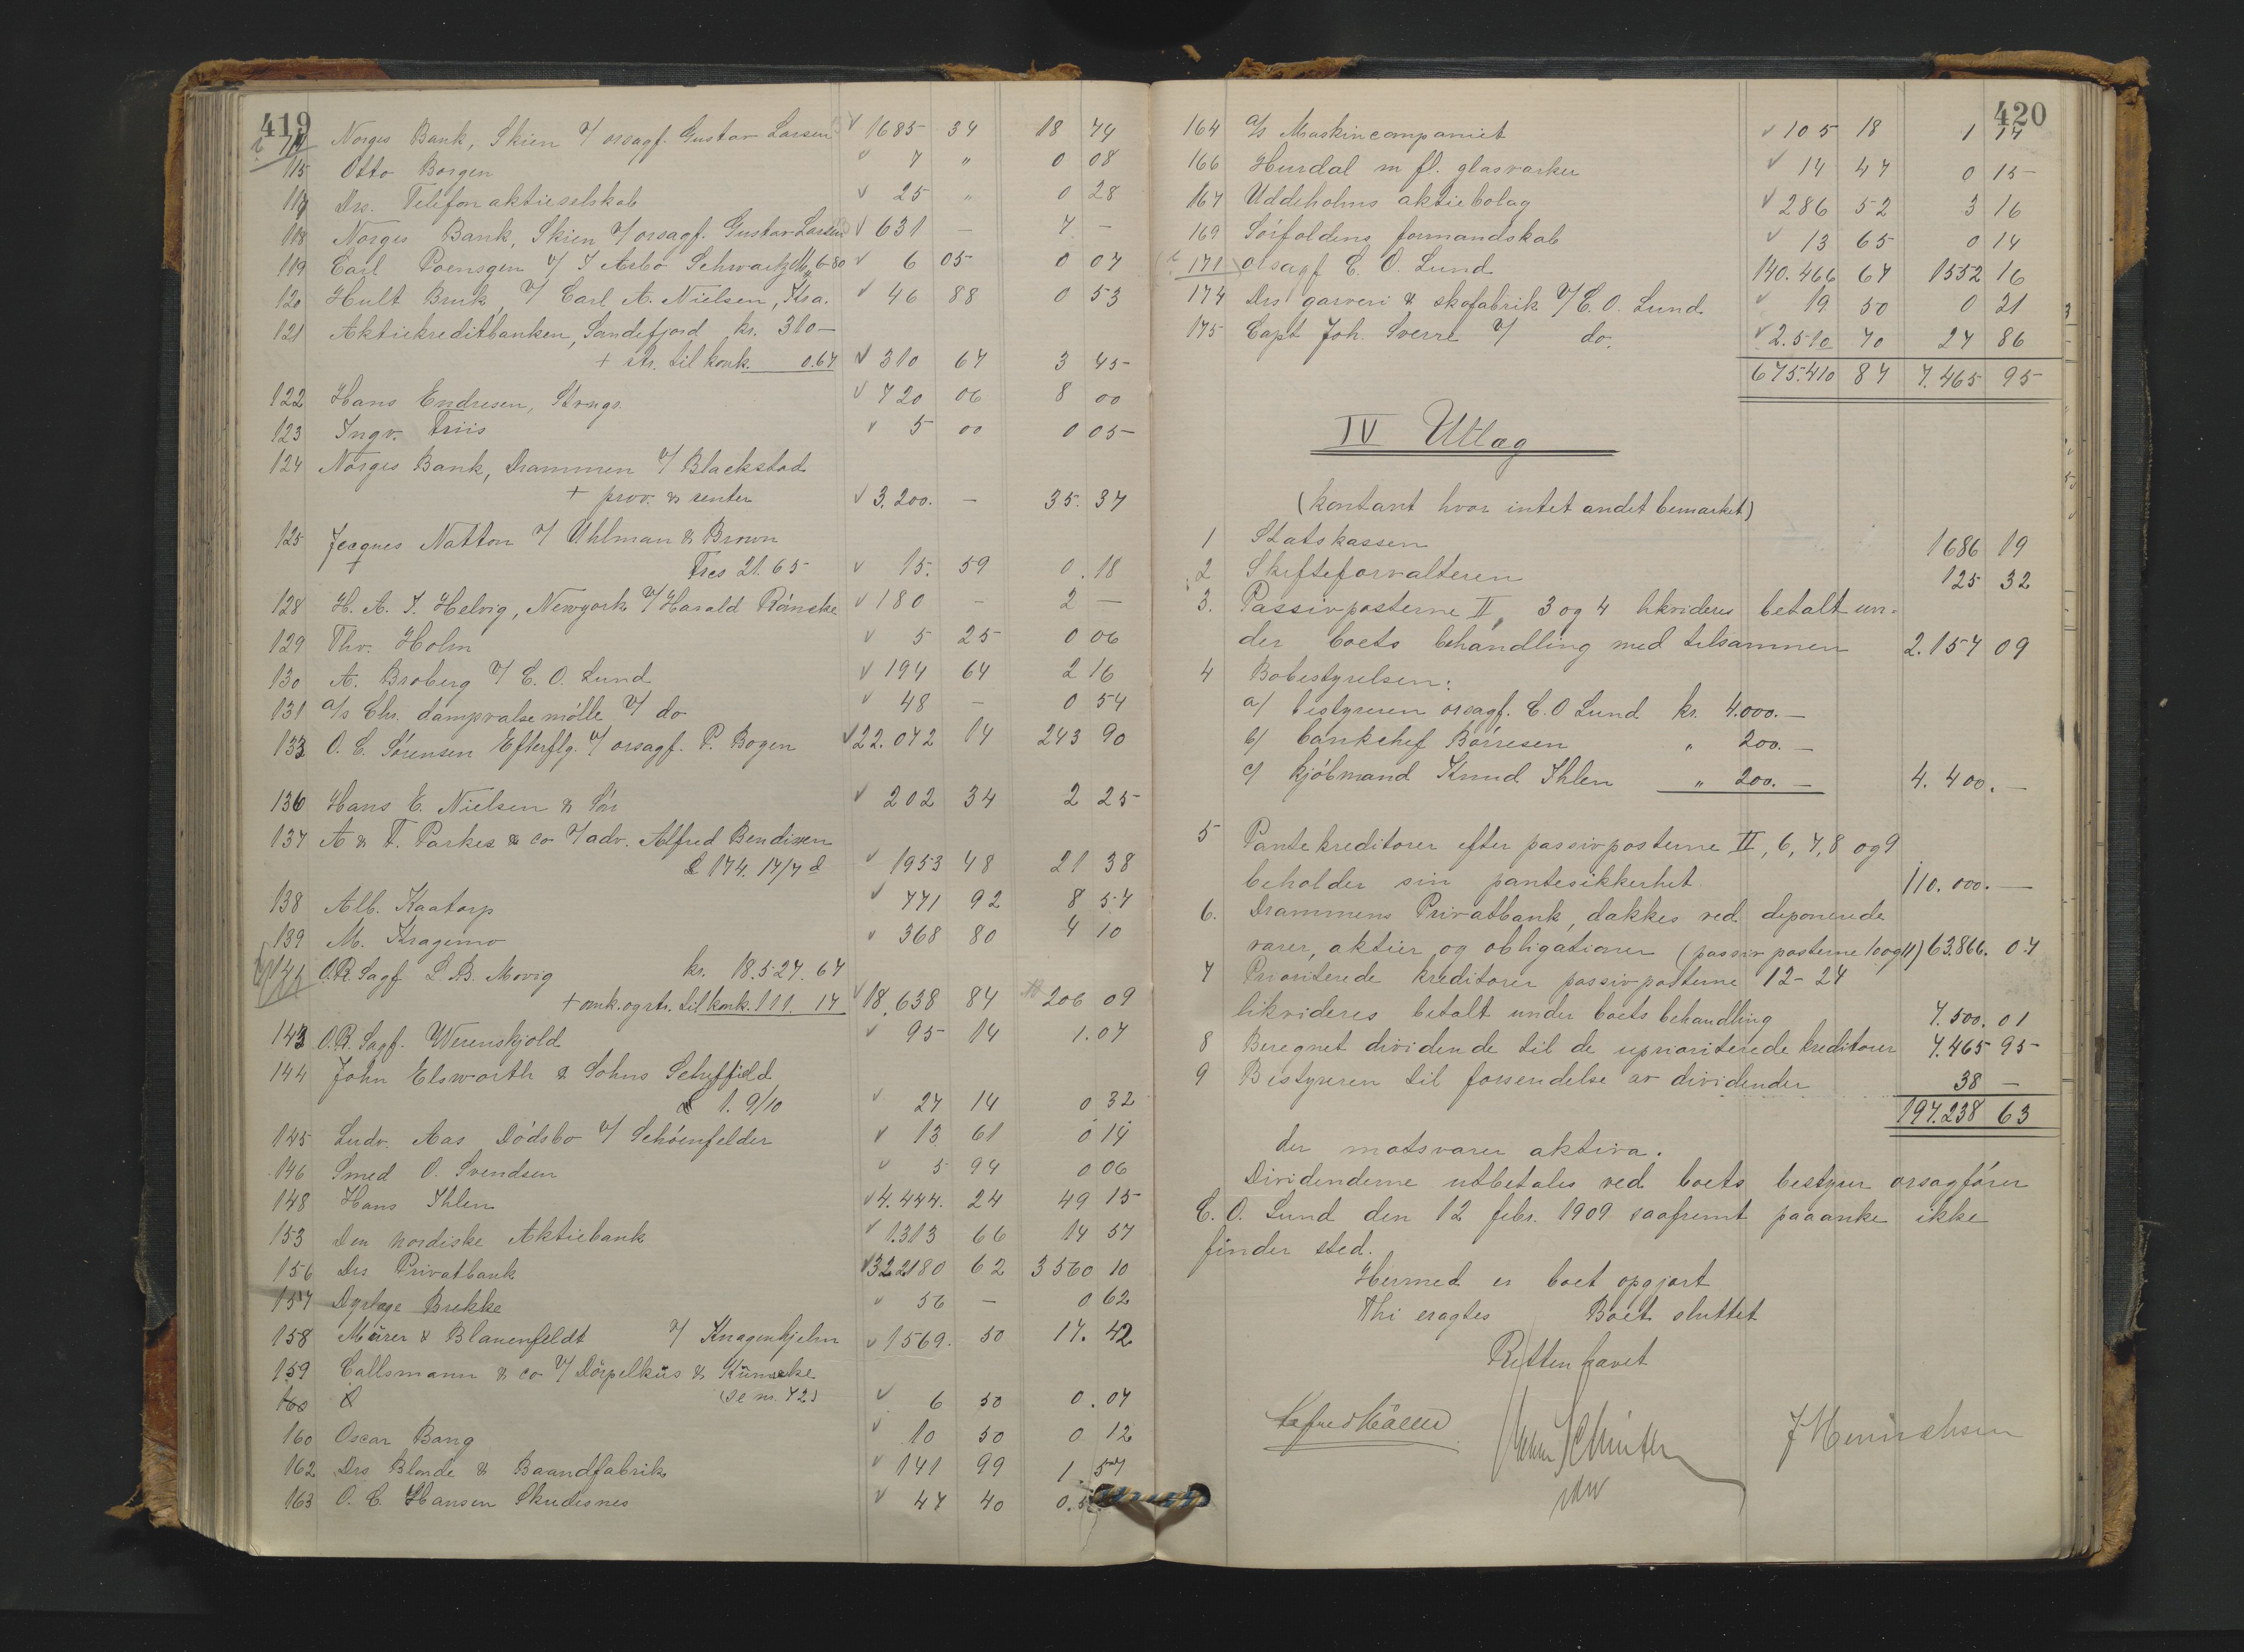 419
114 Norges Bank, Skien v/ orsagf. Gustav Larsen v 1685 34 18 74
115 Otto Borgen v 7 " 0 08
117 Drs. Telefonaktieselskab v 25 " 0 28
118 Norges Bank, Skien v/ orsagf. Gustav Larsen v 631 — 7 —
119 Carl Poensgen v/ I Asbo Schwartz M. 6-80 v 6 05 0 07
120 Hult Bruk v/ Carl A. Nielsen, Kra. v 46 88 0 53
121 Aktiekreditbanken, Sandefjord kr. 310—
+ rtr. til konk. 0.67 v 310 67 3 45
122 Hans Endresen, Strngs. v 720 06 8 00
123 Ingv. Friis v 5 00 0 05
124 Norges Bank, Drammen v/ Blackstad
+ prov. & renter v 3.200. — 35. 37
125 Jecques Natton v/ Uhlman & Brown
Frcs 21.65 v 15. 59 0.18
128 H. A. I. Helvig, Newyork v/ Harald Rønneke v 180 — 2 —
129 Thv. Holm v 5 25 0 06
130 A. Broberg v/ C. O. Lund v 194 64 2 16
131 a/s Chr. dampvalsemølle v/ do v 48 — 0 54
133 O. C. Sørensen Efterflg. v/ orsagf. P. Bogen v 22.072 14 243 90
136 Hans E. Nielsen & Søn v 202 34 2 25
137 A & F. Parkes & co v/ adv. Alfred Bendixen
£ 174. 17/7 d v 1953 48 21 38
138 Alb. Kaatorp v 771 92 8 57
139 M. Kragemo v 368 80 4 10
141 O.R.Sagf L. B. Movig kr. 18.527.67
+ omk. og rtr. til konk. 111. 17 v 18.638 84 206 09
143 O.R. Sagf. Werenskjold v 95 14 1.07
144 John Elsworth & Sohns Scheffield
£ 1. 9/10 v 27 14 0 32
145 Ludv. Aas Dødsbo v/ Schöenfelder v 13 61 0 14
146 Smed O. Svendsen v 5 94 0 06
148 Hans Ihlen v 4.444. 24 49 15
153 Den nordiske Aktiebank v 1.313 66 14 57
156 Drs Privatbank v 322180 62 3560 10
157 Dyrlæge Brekke v 56 — 0 62
158 Mürer & Blauenfeldt v/ Knagenhjelm v 1569. 50 17. 42
159 Callsmann & co v/ Dörpelküs & Künneke
(se nr. 72) v 6 50 0.07
160 Oscar Bang v 10 50 0 12
162 Drs Blonde & Baandfabrik v 141 99 1 57
163 O. C. Hansen Skudesnes v 47 40
420
164 a/s Maskincompaniet v 105 18 1 17
166 Hurdal m fl. glasværker v 14 47 0 15
167 Uddeholms aktiebolag v 286 52 3 16
169 Sørfoldens formandskab v 13 65 0 14
171 orsagf C. O. Lund 140.466 67 1552 16
174 Drs garveri & skofabrik v/ C. O. Lund v 19 50 0 21
175 Capt Joh. Sverre v/ do. v 2.510 70 27 86
675.410 87 7.465 95
IV Utlæg
(kontant hvor intet andet bemærket)
1 Statskassen 1686 19
2 Skifteforvalteren 125 32
3. Passivposterne II, 3 og 4 likvideres betalt un-
der boets behandling med tilsammen 2.157 09
4 Bobestyrelsen:
a/ bestyreren orsagf. C. O Lund kr. 4.000.—
b/ bankchef Børresen " 200.—
c/ kjøbmand Knud Ihlen " 200.— 4.400.—
5 Pantekreditorer efter passivposterne II, 6, 7, 8 og 9
beholder sin pantesikkerhet 110.000.—
6. Drammens Privatbank, dækkes ved deponerede
varer, aktier og obligationer (passivposterne 10 og 11) 63.866. 07
7 Prioriterede kreditorer passivposterne 12-24
likvideres betalt under boets behandling 7.500. 01
8 Beregnet dividende til de uprioriterede kreditorer 7.465 95
9 Bestyreren til forsendelse av dividender 38 —
197.238 63
der motsvarer aktiva.
Dividenderne utbetales ved boets bestyrer orsagfører
C. O. Lund den 12 febr. 1909 saafremt paaanke ikke
finder sted.
Hermed er boet opgjort
Thi eragtes Boet sluttet
Retten hævet